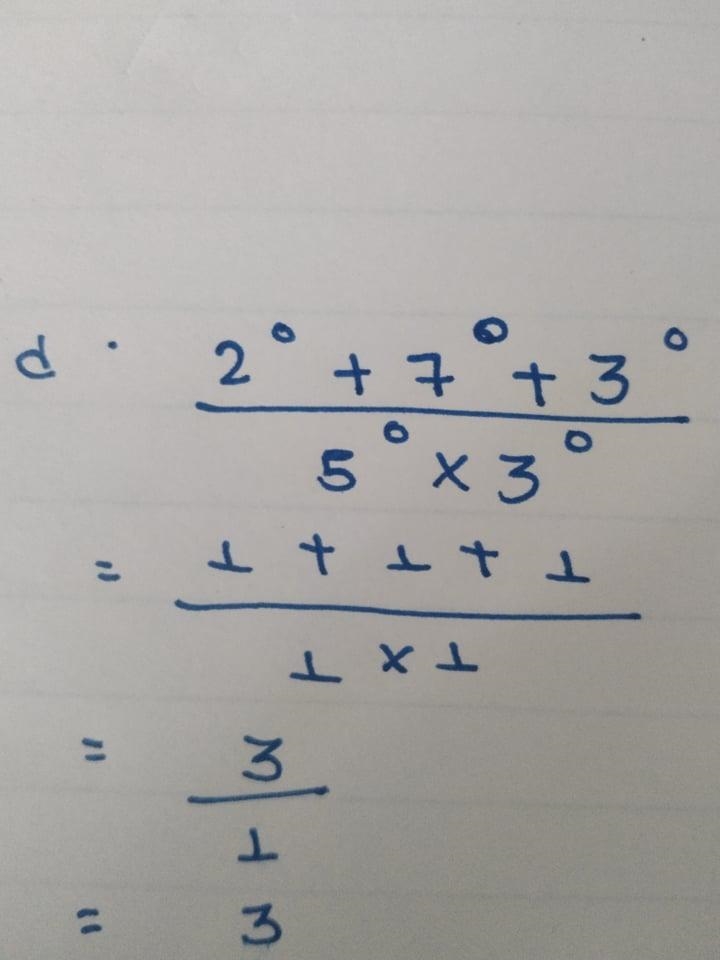 d. 2⁰ + 7⁰ + 3⁰
5⁰ × 3⁰
= 1 + 1 + 1
1 × 1
= 3
1
= 3